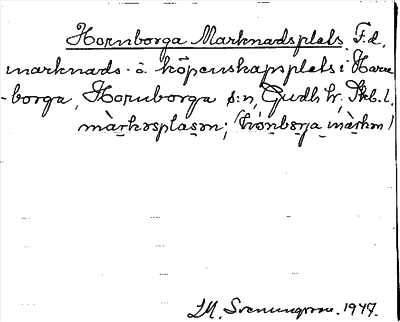 Hornborga Marknadsplats. F.d.
marknads- o. köpenskapsplats i Horn
-borga, Hornborga s:n, Gudh. hr, Skb. l.
màrkǝsplasǝn; (hònbǝrja màrkǝn)
1947.